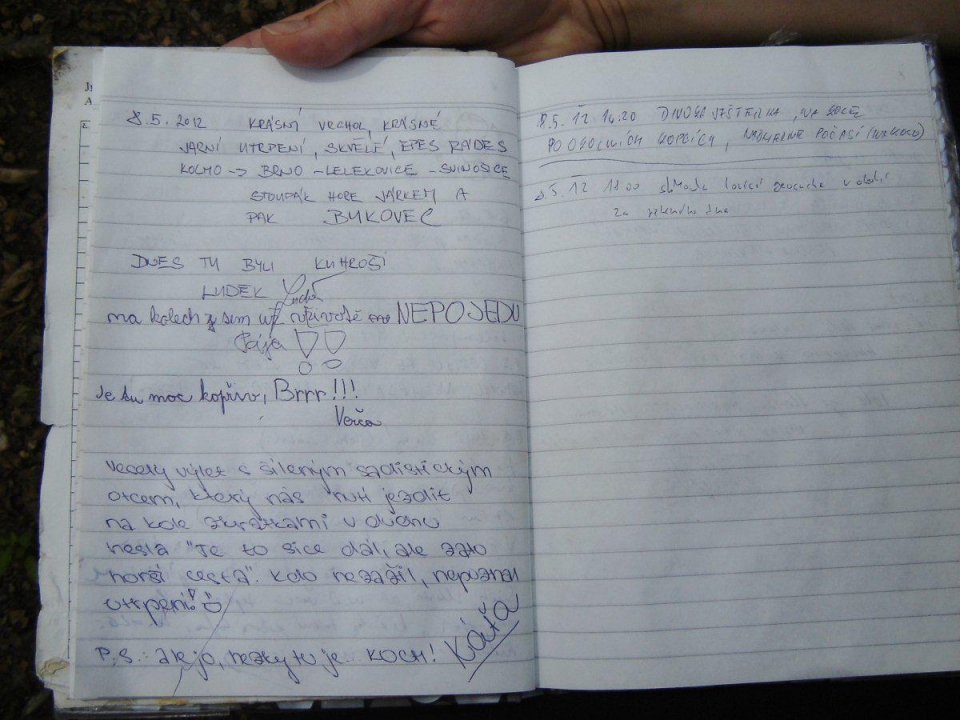 8.5.2012 KRÁSNÝ VRCHOL, KRÁSNÉ
JARNÍ UTRPENÍ, SKVĚLÉ, EPES RAIDES
KOLMO -> BRNO - LELEKOVICE - SVINOŠICE
STOUPÁK HORE JARKEM A
PAK BUKOVEC
DNES TU BYLI KUHROŠÍ
LUDEK
na kolech sem už v životě NEPOJEDU
Pája !!
Je tu moc kopřiv, Brrr!!!
Verča
Veselý výlet s šíleným sadistickým
otcem, který nás nutí jezdit
na kole zkratkami v duchu
hesla "Je to sice dál, ale zato
horší cesta". Kdo nezažil, nepoznal
utrpení!
P.S.: ale jo, hezky tu je KOCH! Káťa
8.5.12 14:20
PO OKOLNÍCH KOPCÍCH, NÁDHERNÉ POČASÍ
8.5.12 18:00
za